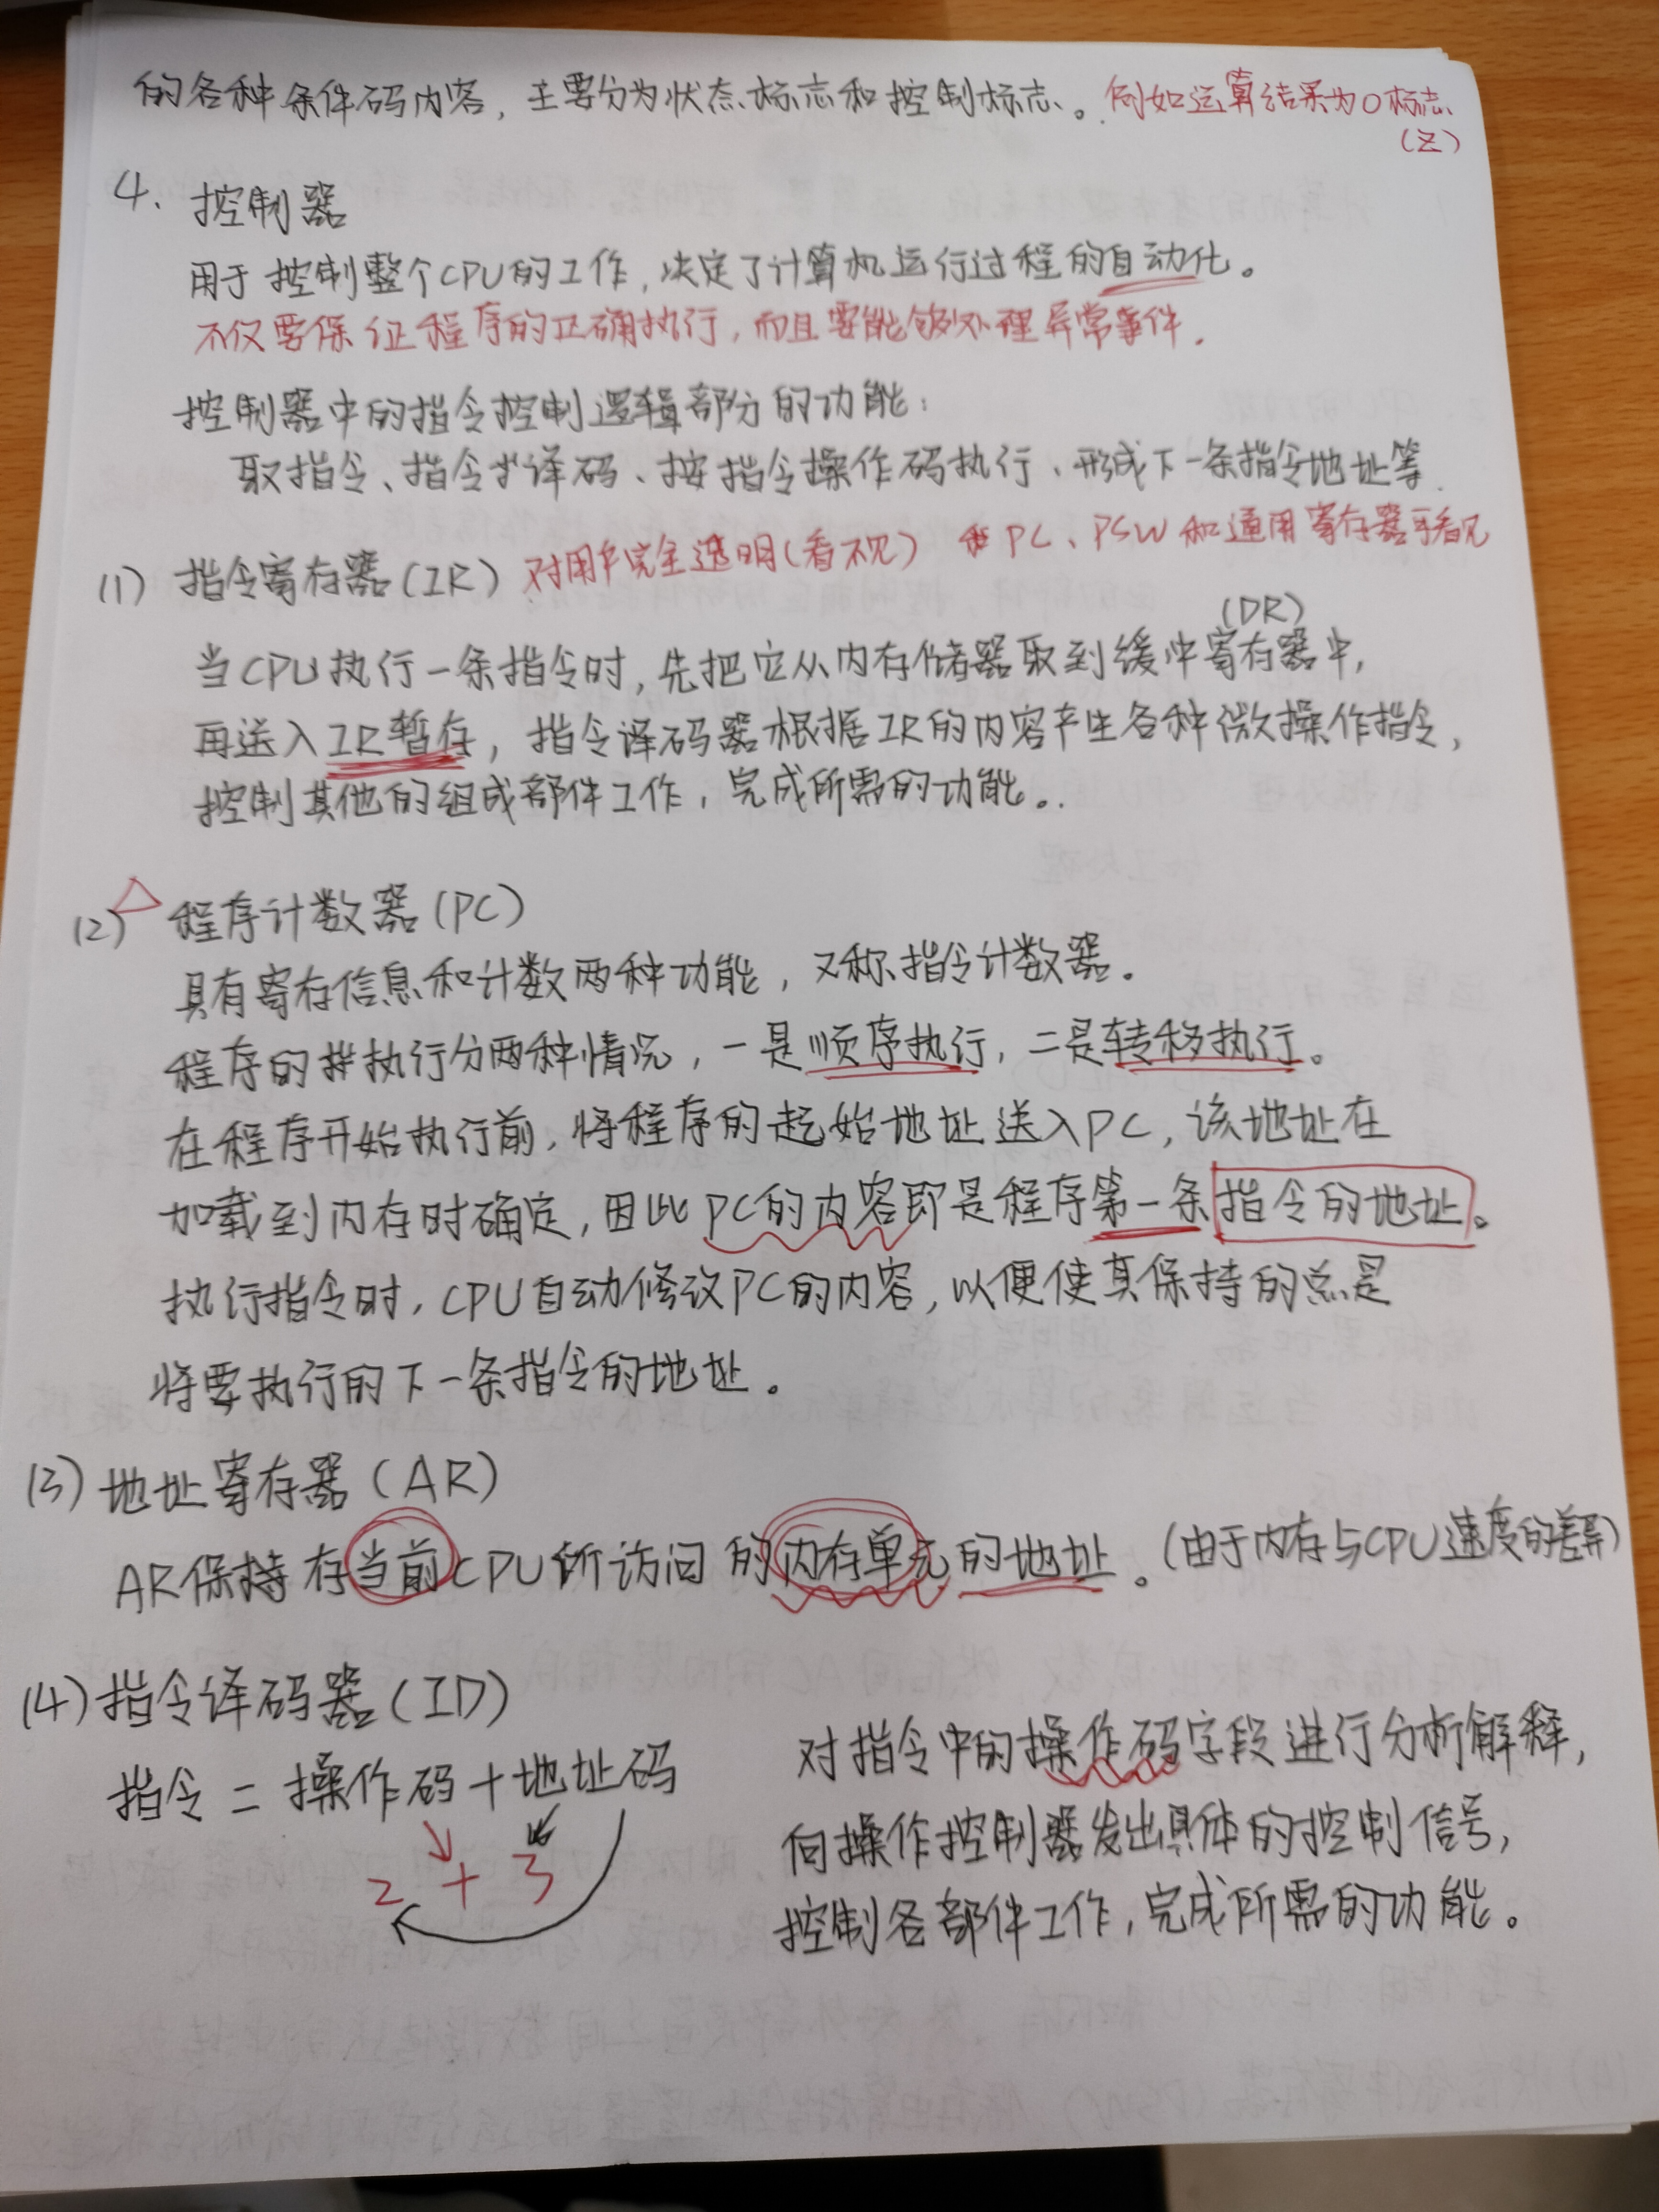 的各种条件码内容，主要分为状态标志和控制标志。例如运算结果为0标志
(Z)
4. 控制器
用于控制整个CPU的工作，决定了计算机运行过程的自动化。
不仅要保证程序的正确执行，而且要能够处理异常事件.
控制器中的指令控制逻辑部分的功能：
取指令、指令译码、按指令操作码执行、形成下一条指令地址等.
(1) 指令寄存器(IR) 对用户完全透明(看不见) PC、PSW和通用寄存器可看见
(DR)
当CPU执行一条指令时，先把它从内存储器取到缓冲寄存器中,
再送入IR暂存，指令译码器根据IR的内容产生各种微操作指令,
控制其他的组成部件工作，完成所需的功能。
(2) 程序计数器(PC)
具有寄存信息和计数两种功能，又称指令计数器。
程序的执行分两种情况，一是顺序执行，二是转移执行。
在程序开始执行前，将程序的起始地址送入PC，该地址在
加载到内存时确定，因此PC的内容即是程序第一条指令的地址。
执行指令时，CPU自动修改PC的内容，以便使其保持的总是
将要执行的下一条指令的地址。
(3) 地址寄存器(AR)
AR保持存当前CPU所访问的内存单元的地址。(由于内存与CPU速度的差异)
(4) 指令译码器(ID)
指令 = 操作码 + 地址码
2 + 3
对指令中的操作码字段进行分析解释,
向操作控制器发出具体的控制信号,
控制各部件工作，完成所需的功能。